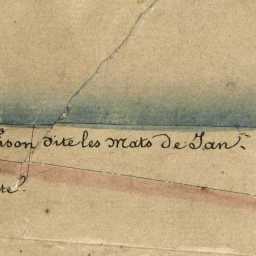 ison dite les Mats de Jan.
te.